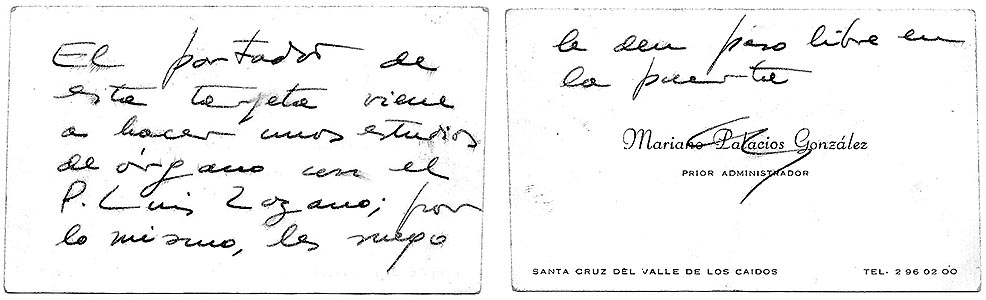 El portador de
esta targeta viene
a hacer unos estudios
de órgano con el
P. Luis Lozano; por
lo mismo, les ruego
le den paso libre en
la puerta
Mariano Palacios González
PRIOR ADMINISTRADOR
SANTA CRUZ DEL VALLE DE LOS CAIDOS
TEL. 2 96 02 00